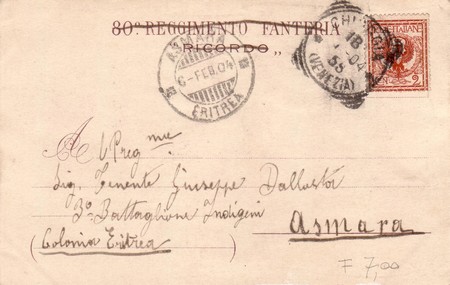 80º REGGIMENTO FANTERIA
RICORDO„
ASMARA
6-FEB.04
ERITREA
CHIOGGIA
18
04
55
(VENEZIA)
ITALIANE
2
Al Preg.mo
Sig. Tenente Giuseppe Dallosta
3º Battaglione Indigeni
Asmara
(Colonia Eritrea)
F 7,00